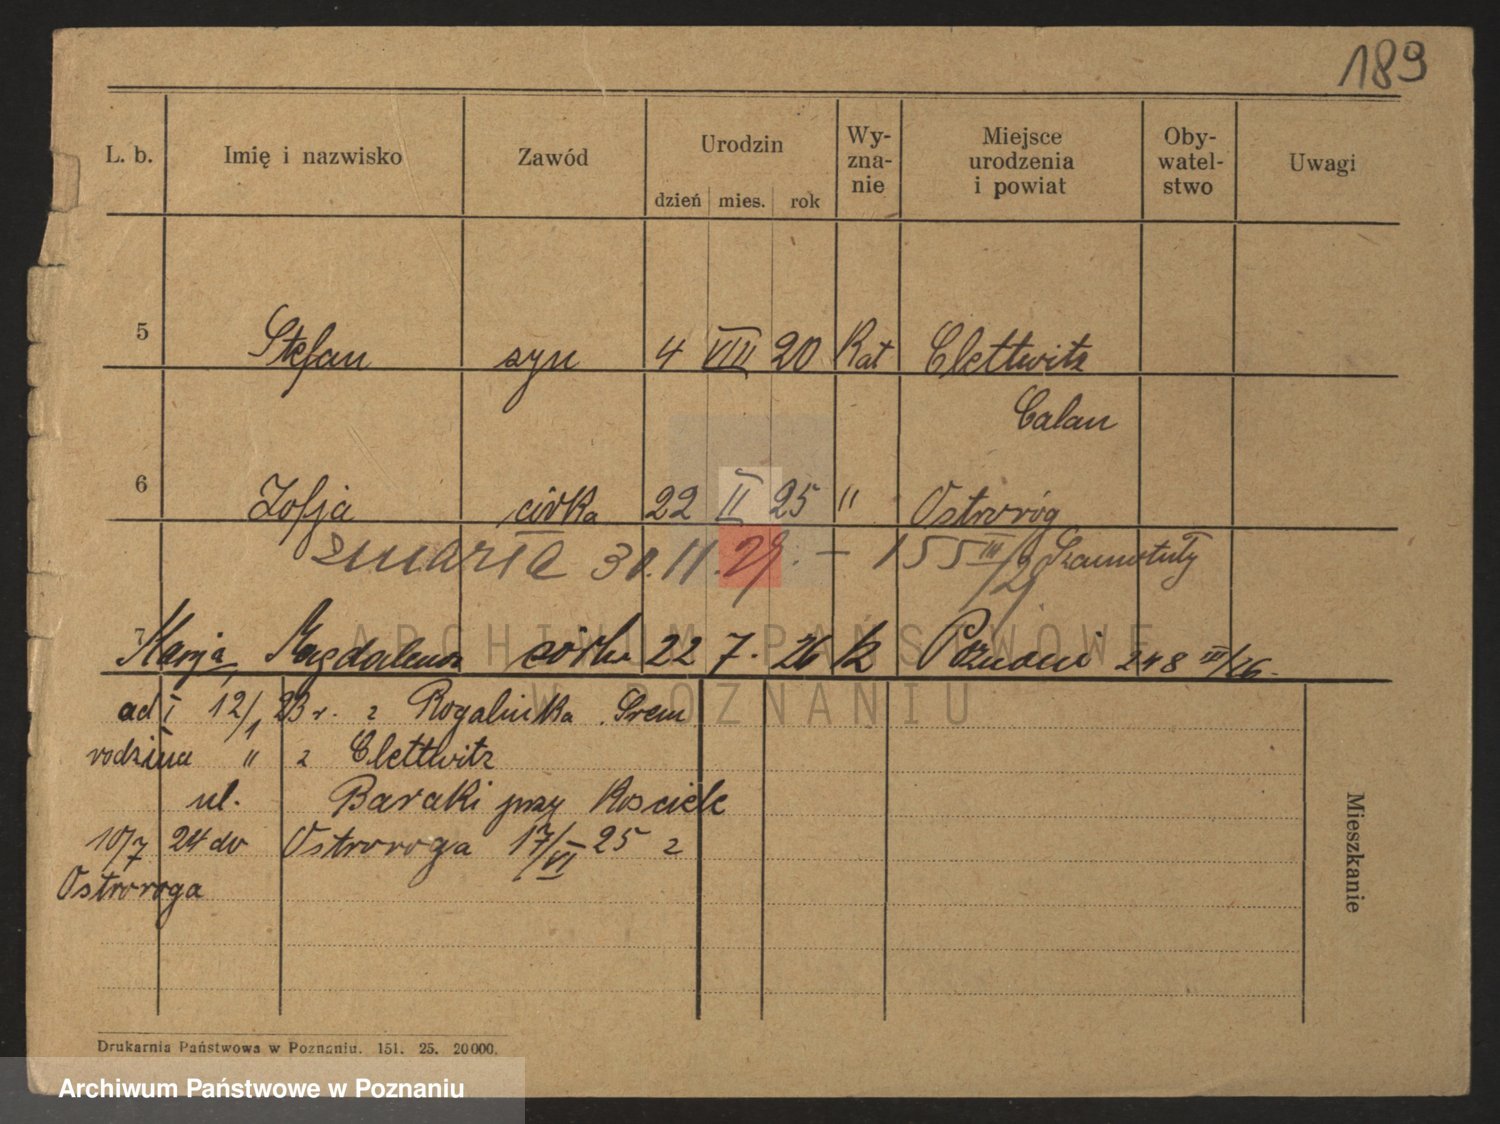 189
L. b. Imię i nazwisko Zawód Urodzin dzień mies. rok Wy-zna-nie Miejsce urodzenia i powiat Oby-watel-stwo Uwagi
5 Stefan syn 4 VIII 20 Kat Clettwitz
Calau
6 Zofja córka 22 II 25 " Ostroróg
zmarła 30.11.29. – 155 III/29 Szamotuły
7 Marja Magdalena córka 22 7. 26 k Poznań 248 III/26.
ARCHIWUM PAŃSTWOWE
W POZNANIU
ad I 12/1 23 r. z Rogalinka Śrem
rodzina " z Clettwitz
ul. Baraki przy Kosciele
10/7 24 do Ostroroga 17/VI 25 z
Ostroroga
Mieszkanie
Drukarnia Państwowa w Poznaniu. 151. 25. 20000.
Archiwum Państwowe w Poznaniu